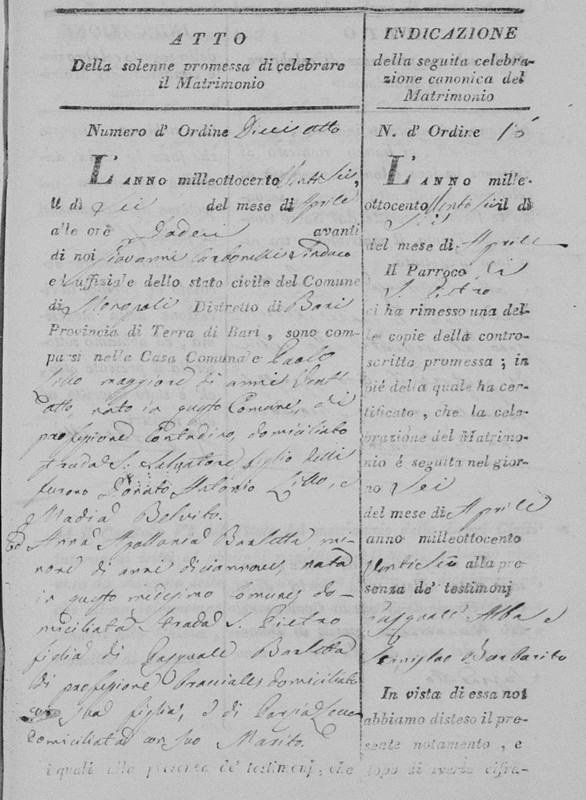 ATTO
Della solenne promessa di celebrare
il Matrimonio
Numero d' Ordine Dieci otto
L'ANNO milleottocento Ventisei,
il dì Sei del mese di Aprile
alle ore dodeci avanti
di noi Giovanni Carbonelli Sindaco
e l'uffiziale dello stato civile del Comune
di Monopoli Distretto di Bari
Provincia di Terra di Bari, sono com-
parsi nella Casa Comunale Paolo
Lillo maggiore di anni Vent'
otto, nato in questo Comune, di
professione Contadino, domiciliato
strada S. Salvatore figlio delli
furono Donato Antonio Lillo, e
Madia Belvito.
ed Anna Apollonia Barletta mi-
nore di anni diciannove, nata
in questo medesimo Comune do-
miciliata Strada S. Pietro
figlia di Pasquale Barletta
di professione Bracciale, domiciliato
con sua figlia, e di Porzia Lecce
domiciliata con suo Marito.
i quali alla presenza de' testimonj, che
INDICAZIONE
della seguita celebra-
zione canonica del
Matrimonio
N. d' Ordine
L'ANNO mille-
ottocento Ventisei il dì
Sei
del mese di Aprile
Il Parroco di
S. Pietro
ci ha rimesso una del-
le copie della contro-
scritta promessa; in
piè della quale ha cer-
tificato, che la cele-
brazione del Matrimo-
nio è seguita nel gior-
no Sei
del mese di Aprile
anno milleottocento
Ventisei alla pre-
senza de' testimonj
Pasquale Alba e
Barbarito
In vista di essa noi
abbiamo disteso il pre-
sente notamento, e
dopo di averlo cifra-